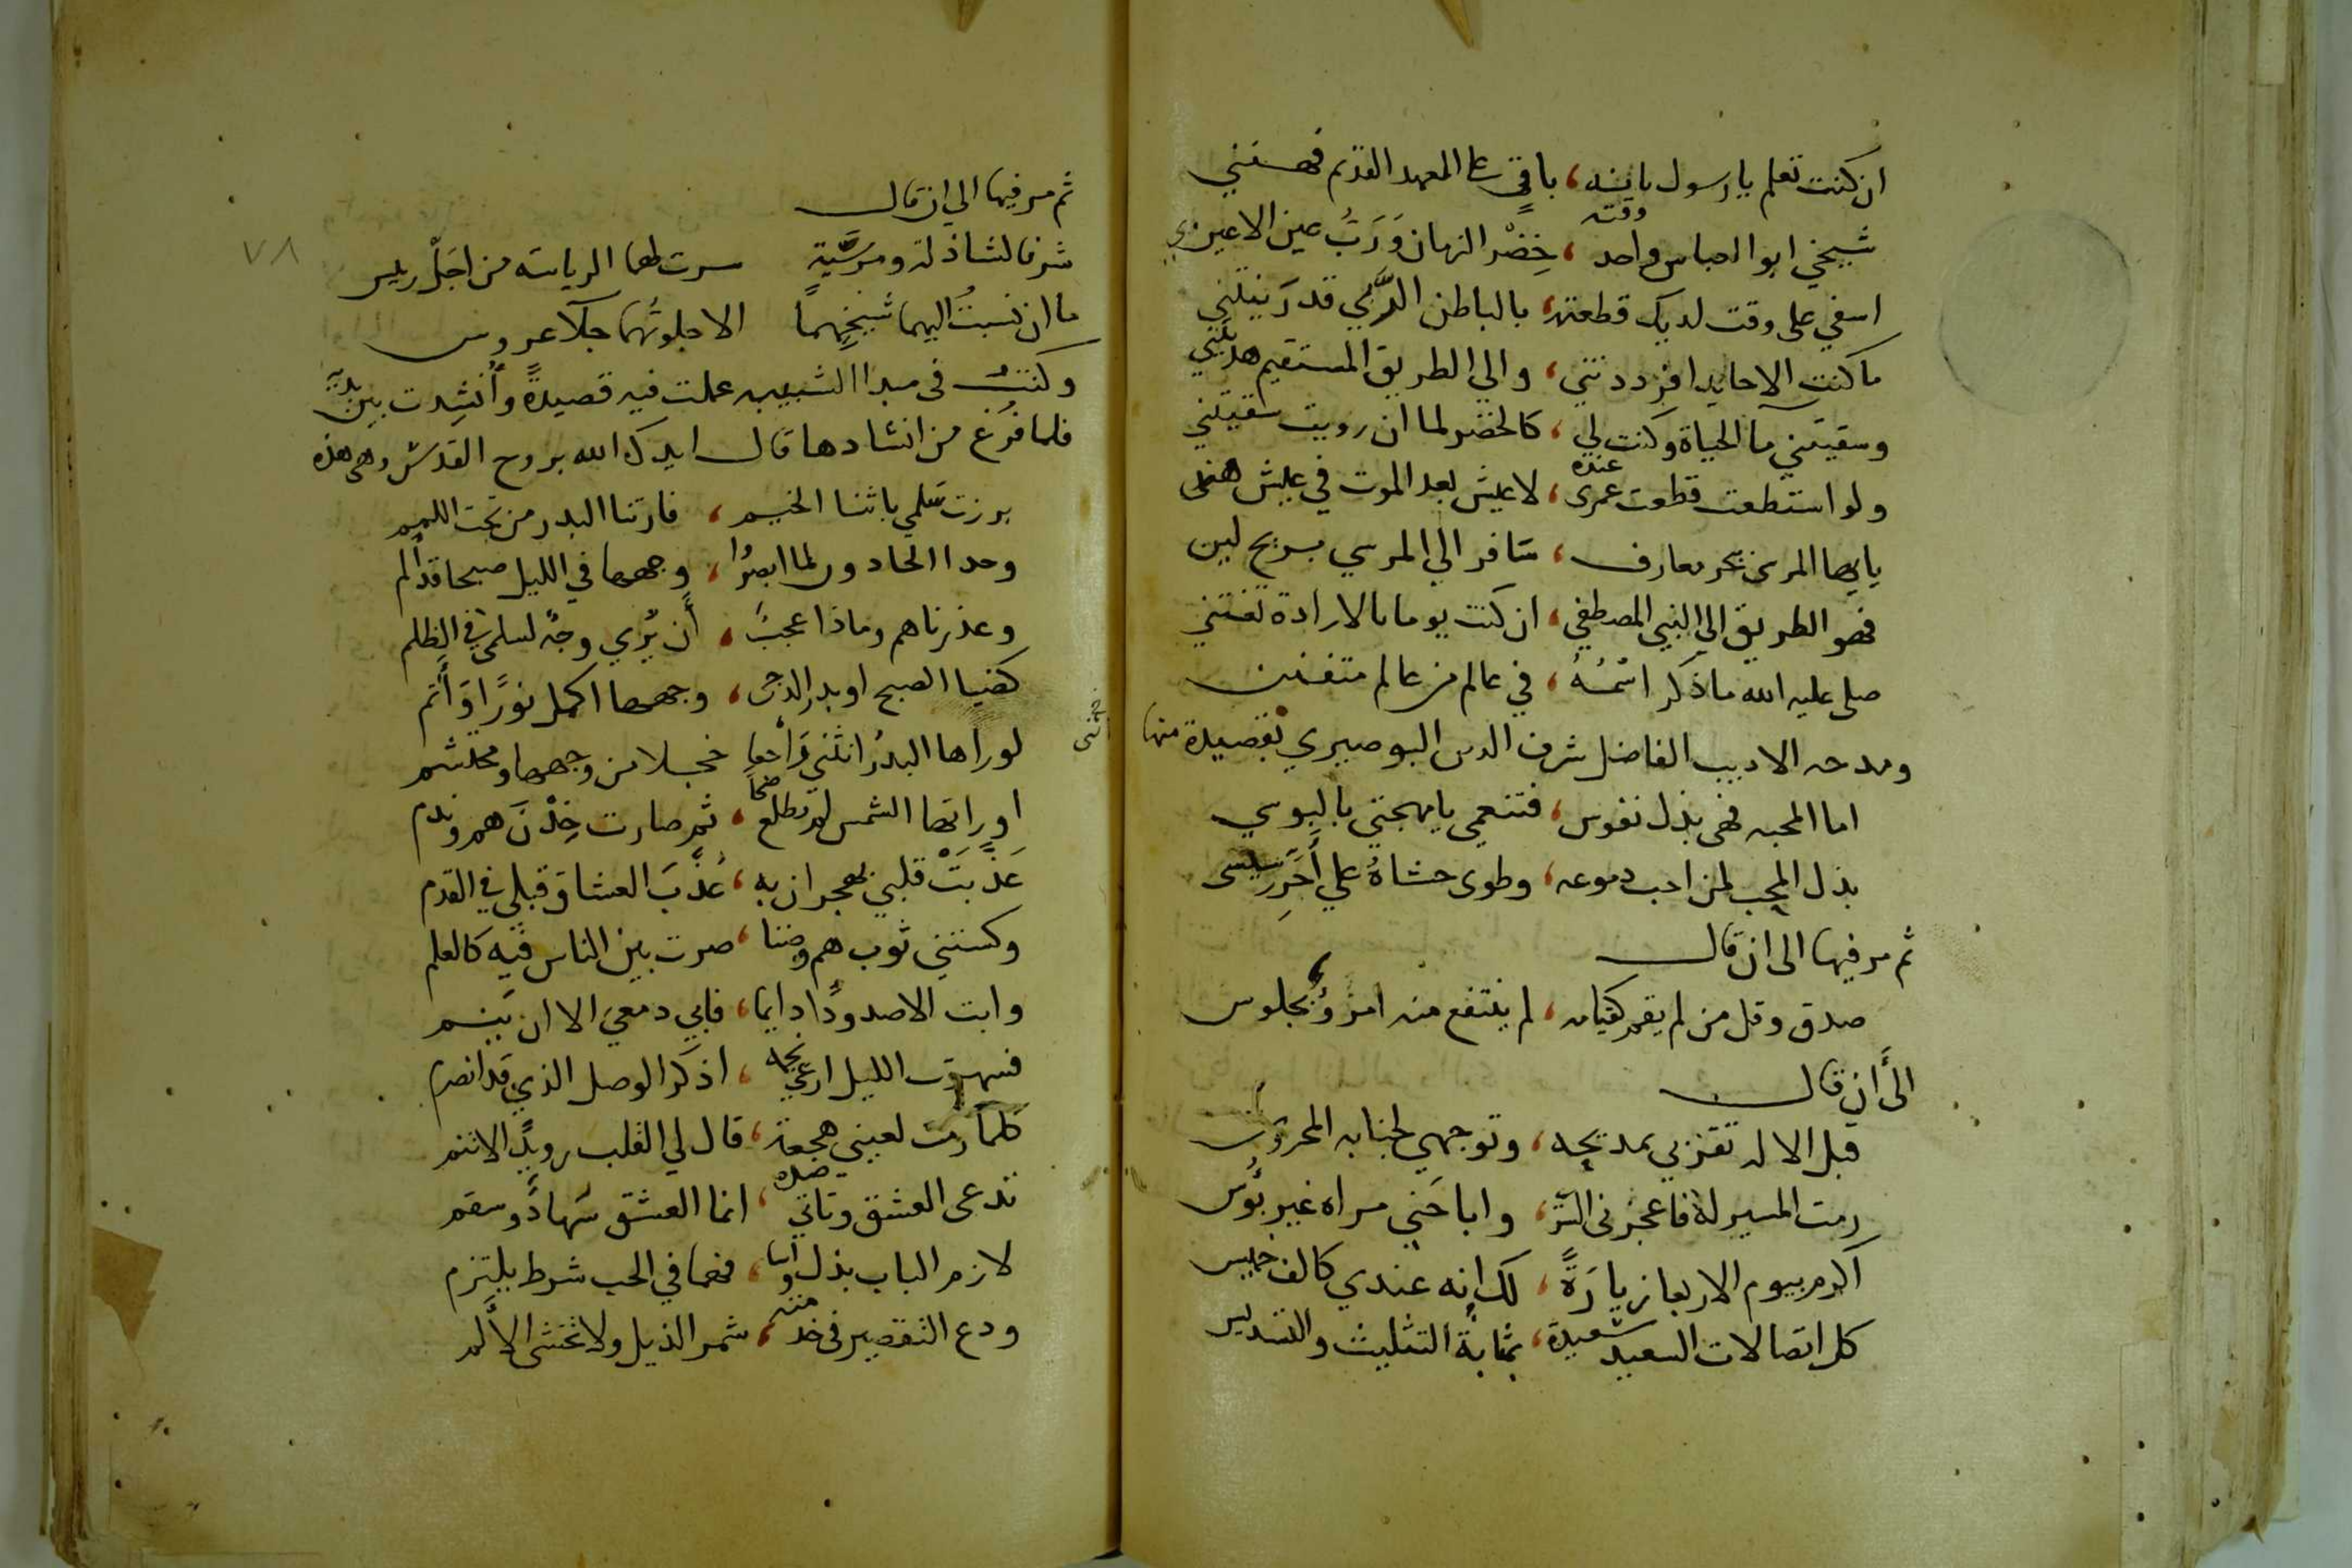 ان كنت تعلم يا رسول بانه، باقٍ على العهد القديم فهنني
شيخي ابو العباس واحد وقته، خِضْر الزمان وَرَبُّ عين الاعين
اسفي على وقت لديك قطعته، بالباطن الدَّيني قد رَبيتني
ما كنت الا حايدا فرددتني، والي الطريق المستقيم هديتني
وسقيتني مآ الحياة وكنت لي، كالخضر لما ان رويت سقيتني
ولو استطعت قطعت عمرى عنده، لا عيش بعد الموت في عيش هنى
يا ايها المرىَ بحر معارف، سَافر الي المرسي بريح لين
فهو الطريق الي النبي المصطفي، ان كنت يوما بالارادة تعتني
صلى عليه الله ما ذكر اسْمُهُ، في عالم من عالم متفنن
ومدحه الاديب الفاضل شرف الدين البوصيري بقصيدة منها
اما المحبه فهى بذل نفوس، فتنعمي يا مهجتي بالبوسي
بذل المحب لمن احب دموعه، وطوى حشاهُ علي أَحَرِّ رسيسى
ثم مر فيها الى ان قال
صدق وقل من لم يقم كقيامه، لم ينتفع منه امرؤٌ بجلوس
الى أن قال
قبل الاله تقربي بمديحه، وتوجهي لجنابه المحروس
رمت المسير له فاعجزنى السُّرَ، واباحَني مراه غير بؤُس
اكرم بيوم الاربعا زيارَةً، لك انه عندي كالف خميس
كل اتصالات السعيد سعيدة، بمثابة التثليث والتسديس
ثم مر فيها الي ان قال
شرفا لشاذلة ومرسيَّةٍ سرت لهما الرياسة من اجَلّ رييس
ما ان نسبتُ اليهما شيخيهماً الا جلوتُهما جلآ عروس
وكنتُ فى مبدا الشبيبه عملت فيه قصيدةً وأُنشِدت بين يديه
فلما فرغ من انشادها قال ايدك الله بروح القدسُ وهى هذه
برزت سَلمي باثنا الخيم، فارتنا البدر من تحت اللمم
وحدا الحادون لما ابصرُوا، وجهها في الليل صبحا قد ألم
وعذرناهم وماذا عجبٌ، أَن يُرَي وجهٌ لسلمى في الظلم
كضيا الصبح او بدر الدجى، وجهها اكمل نورًا وَأَتم
لو راها البدرُ انثني وَاجعا خجلا من وجهها ومحتشم
او راتها الشمس لم تطلع ضحًا، ثم صارت خِدْنَ هم وندم
عَذَّبَتْ قلبي بهجران به، عُذِّبَ العشاق قبلي في القدم
وكستني ثوب هم وضنا، صرت بين الناس فيه كالعلم
وابت الا صدودًا دايما، فابي دمعي الا ان ينسم
فسهرت الليل ارعي نجمه، اذكر الوصل الذي قد انصرم
كلما رمت لعيني هجعة، قال لي القلب رويدًا لا تنم
تدعى العشق وتاتي ضده، انما العشق سَهادٌ وسقم
لازم الباب بذل واسا، فهما في الحب شرط يلتزم
ودع التقصير فى خدمته، شمر الذيل ولا تخشى الأَلم
٧٨